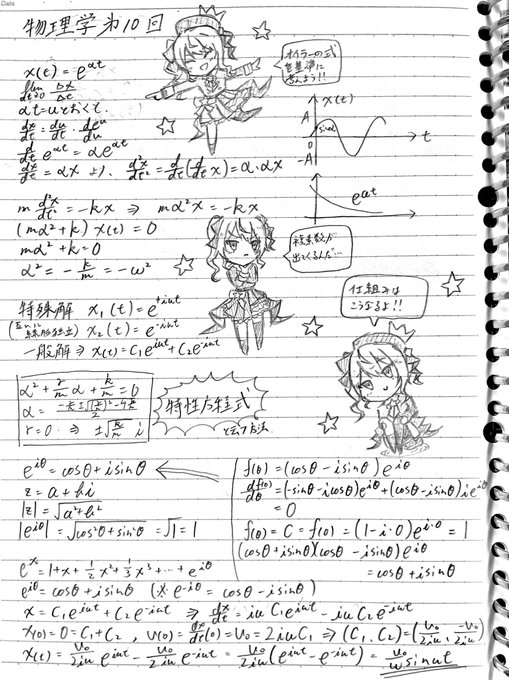 Date
物理学 第10回
x(t) = e^{αt}
lim_{Δt→0} Δx/Δt
αt = uとおくと、
dx/dt = du/dt · de^u/du
d/dt e^{αt} = αe^{αt}
dx/dt = αx より、 d²x/dt² = d/dt(d/dt x) = α·αx
オイラーの式
を基準に
考えよう!!
x(t)
A
sinωt
0
-A
t
e^{αt}
m d²x/dt² = -kx ⇒ mα²x = -kx
(mα²+k) x(t) = 0
mα²+k = 0
α² = -k/m = -ω²
複素数が
出てくるんだ…
仕組みは
こうなるよ!!
特殊解 x₁(t) = e^{+iωt}
(互いに線形独立) x₂(t) = e^{-iωt}
一般解 ⇒ x(t) = C₁e^{iωt} + C₂e^{-iωt}
α² + r/m α + k/m = 0
r=0 ⇒ ±√(k/m) i
特性方程式
と云う方法
e^{iθ} = cosθ + i sinθ
z = a + bi
|z| = √(a²+b²)
|e^{iθ}| = √(cos²θ+sin²θ) = √1 = 1
f(θ) = (cosθ - i sinθ) e^{iθ}
df(θ)/dθ = (-sinθ - i cosθ)e^{iθ} + (cosθ - i sinθ) i e^{iθ}
= 0
f(θ) = C = f(0) = (1 - i·0) e^{i·0} = 1
(cosθ + i sinθ)(cosθ - i sinθ) e^{iθ}
= cosθ + i sinθ
e^x = 1 + x + 1/2 x² + 1/3 x³ + … + e^{iθ}
e^{iθ} = cosθ + i sinθ (※ e^{-iθ} = cosθ - i sinθ)
x = C₁e^{iωt} + C₂e^{-iωt} ⇒ dx/dt = iωC₁e^{iωt} - iωC₂e^{-iωt}
x(0) = 0 = C₁ + C₂, v(0) = dx/dt(0) = v₀ = 2iωC₁ ⇒ (C₁, C₂) = (v₀/2iω, -v₀/2iω)
x(t) = v₀/2iω e^{iωt} - v₀/2iω e^{-iωt} = v₀/2iω (e^{iωt} - e^{-iωt}) = v₀/ω sinωt